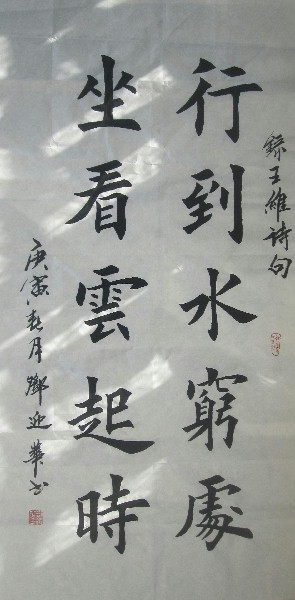 錄王維詩句
行到水窮處
坐看雲起時
庚寅春月鄧迎華书